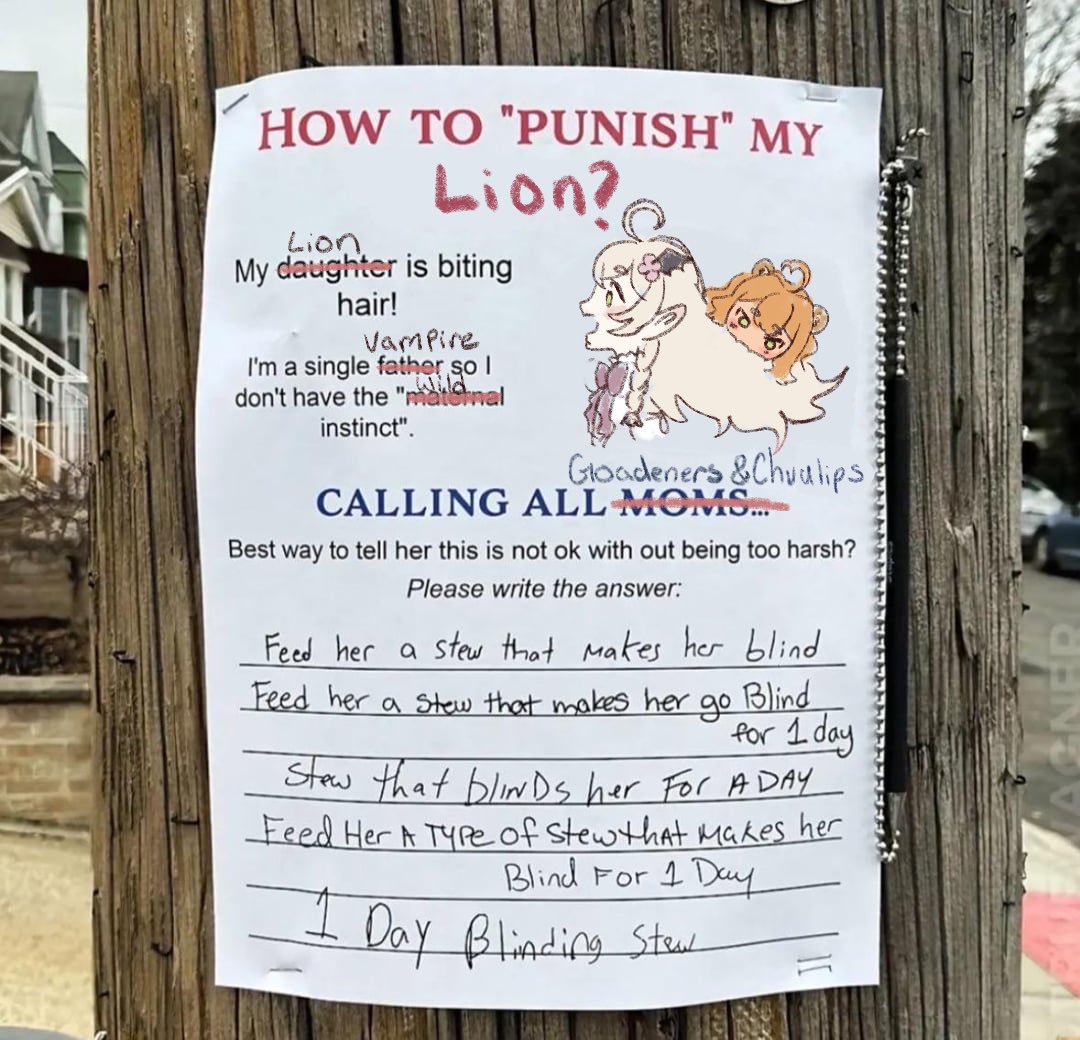 HOW TO "PUNISH" MY
Lion?
Lion
My daughter is biting
hair!
vampire
I'm a single father so I
Wild
don't have the "maternal
instinct".
Gloadeners & Chuulips
CALLING ALL MOMS...
Best way to tell her this is not ok with out being too harsh?
Please write the answer:
Feed her a stew that makes her blind
Feed her a stew that makes her go Blind
for 1 day
Stew that blinDs her For A DAY
Feed Her A TYPe of stew thAt Makes her
Blind For 1 Day
1 Day Blinding Stew